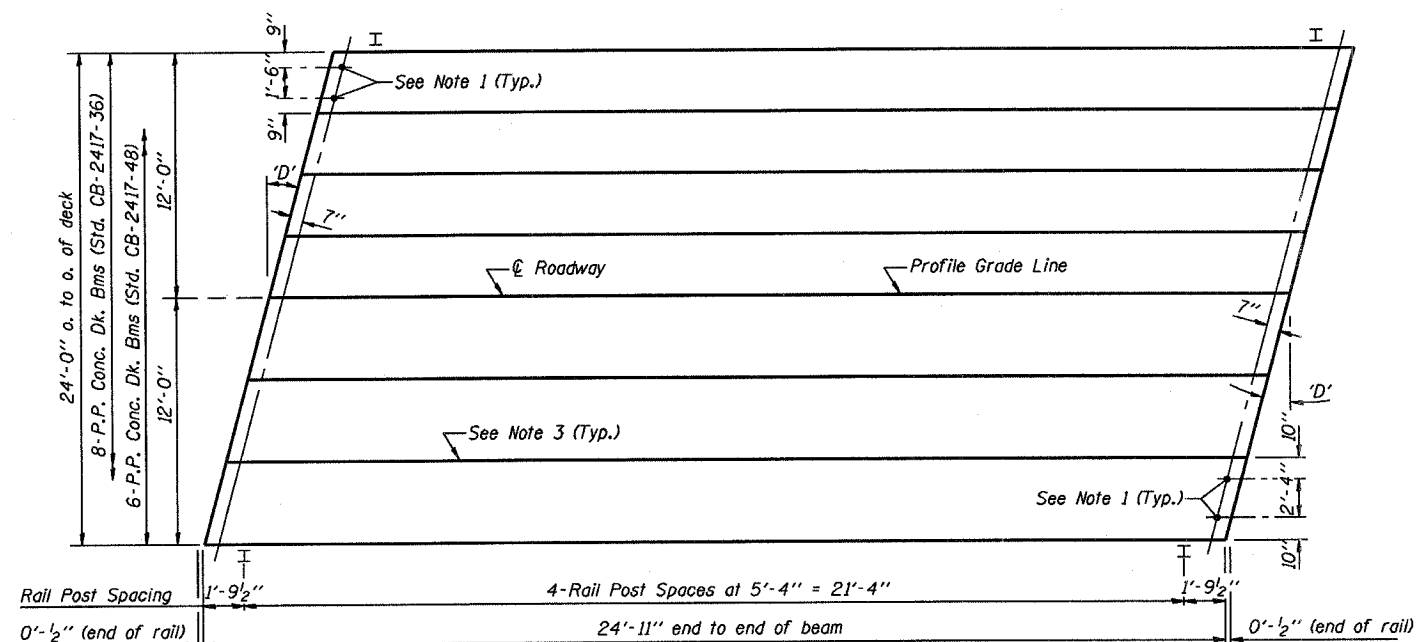 9"
1'-6"
9"
See Note 1 (Typ.)
I
I
24'-0" o. to o. of deck
8-P.P. Conc. Dk. Bms (Std. CB-2417-36)
6-P.P. Conc. Dk. Bms (Std. CB-2417-48)
12'-0"
12'-0"
'D'
7"
℄ Roadway
Profile Grade Line
7"
'D'
See Note 3 (Typ.)
See Note 1 (Typ.)
10"
2'-4"
10"
I
I
Rail Post Spacing
1'-9½"
4-Rail Post Spaces at 5'-4" = 21'-4"
1'-9½"
0'-½" (end of rail)
24'-11" end to end of beam
0'-½" (end of rail)